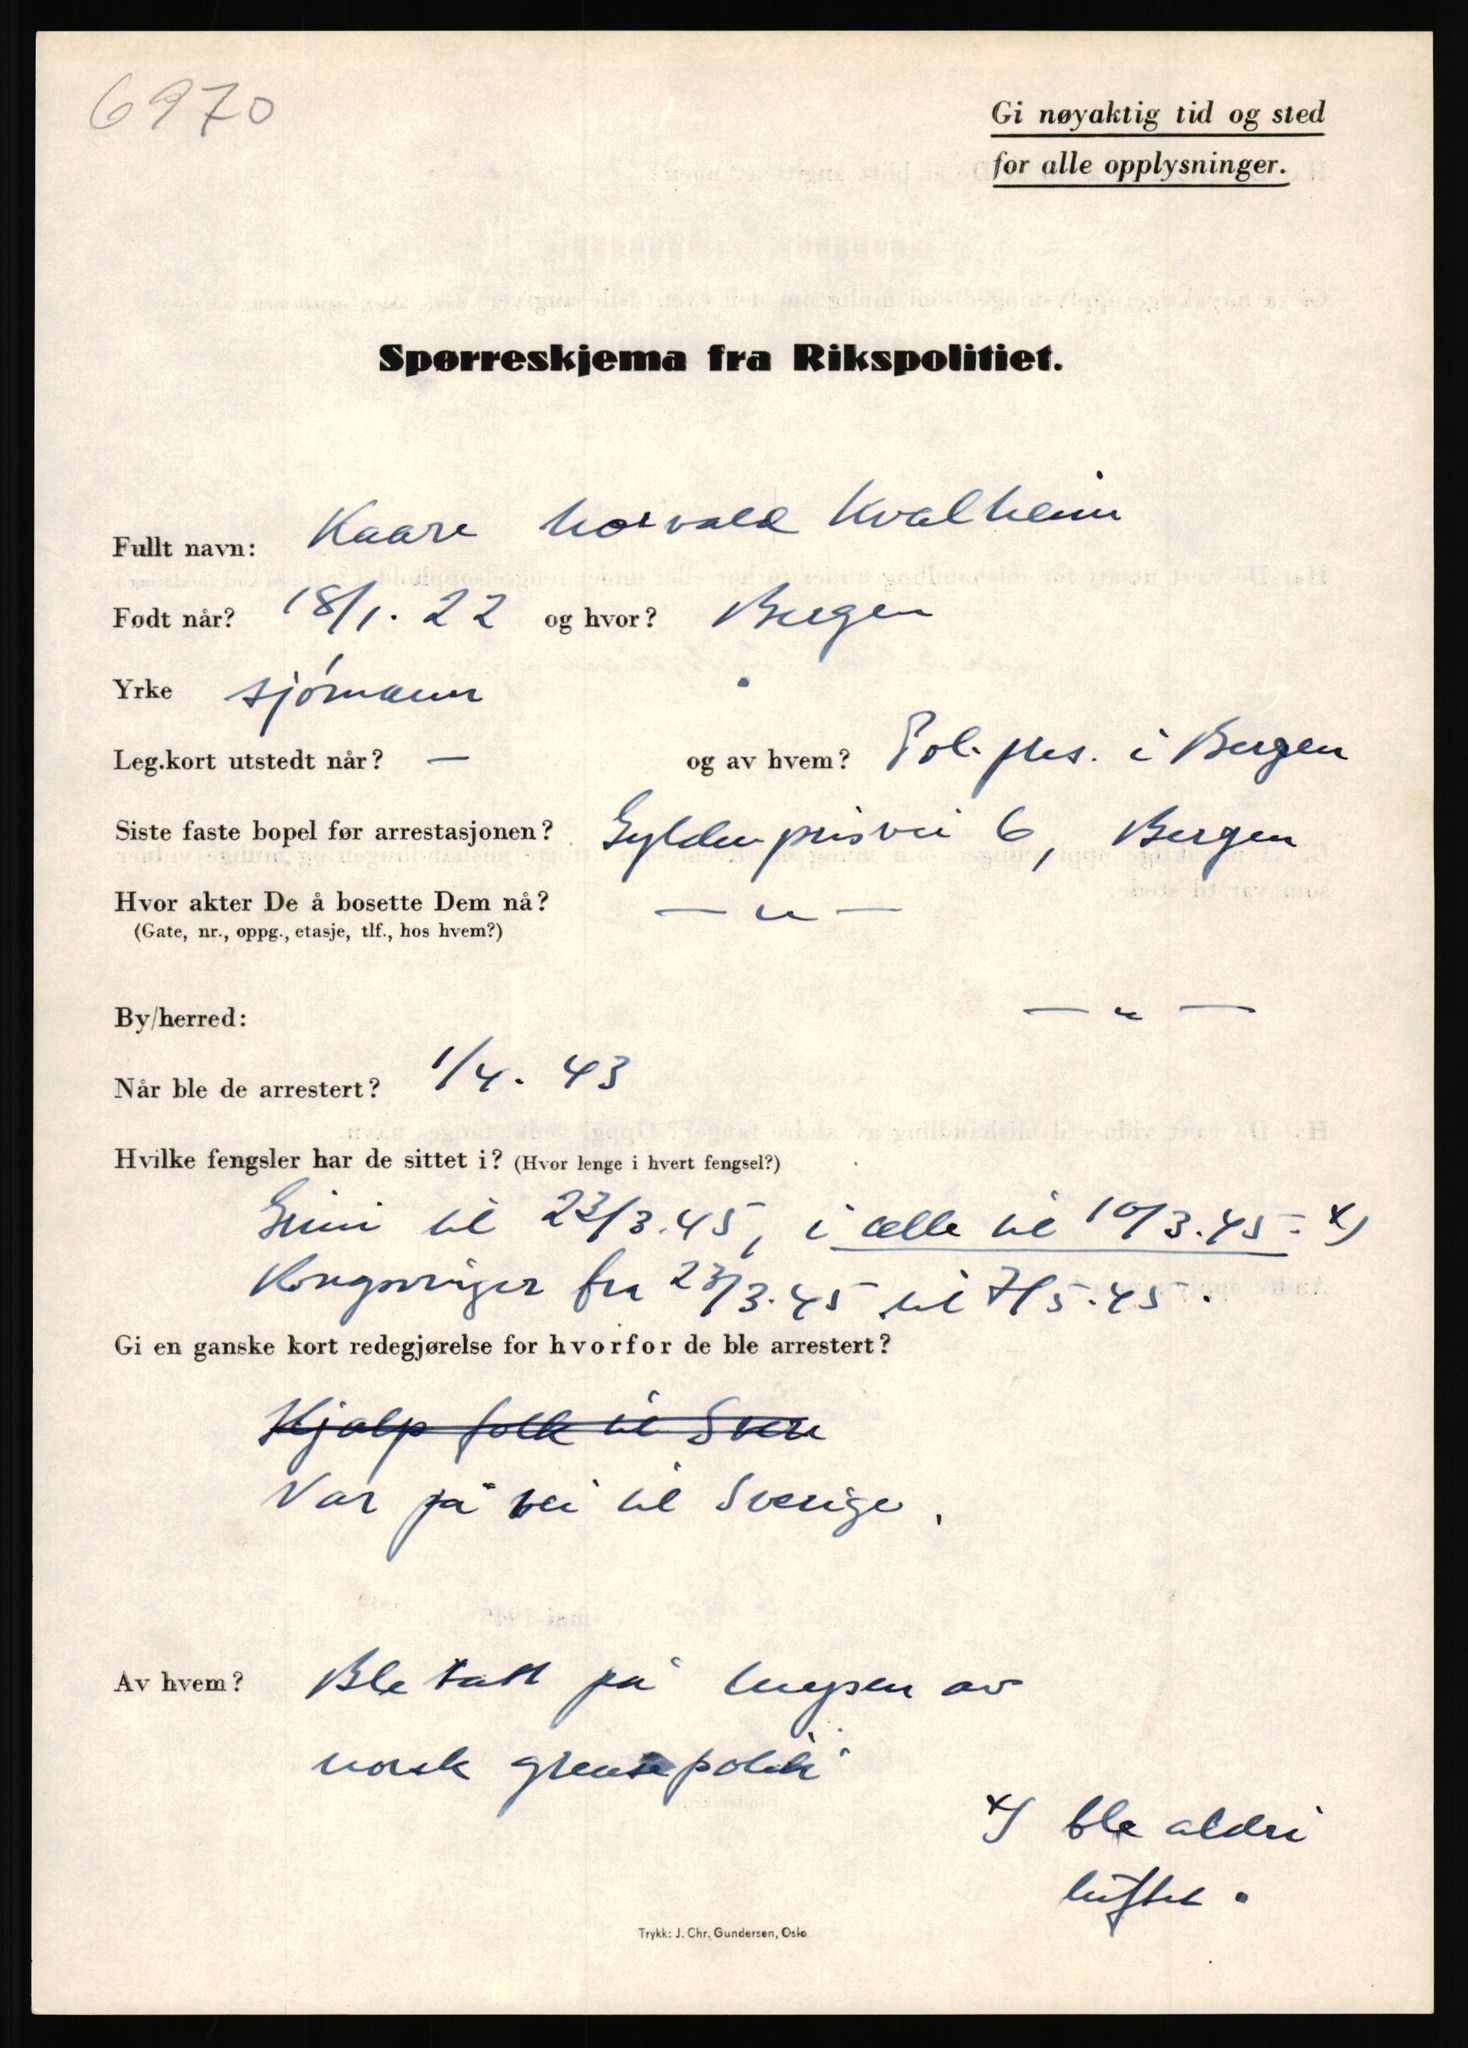 6970
Gi nøyaktig tid og sted
for alle opplysninger.
Spørreskjema fra Rikspolitiet.
Fullt navn: Kaare Norvald Kvalheim
Født når? 18/1. 22 og hvor? Bergen
Yrke sjómann
Leg.kort utstedt når? — og av hvem? Pol. pres. i Bergen
Siste faste bopel før arrestasjonen? Gyldenprisvei 6, Bergen
Hvor akter De å bosette Dem nå? — " —
(Gate, nr., oppg., etasje, tlf., hos hvem?)
By/herred: — " —
Når ble de arrestert? 1/4. 43
Hvilke fengsler har de sittet i? (Hvor lenge i hvert fengsel?)
Grini til 23/3.45, i celle til 10/3.45. x)
Kongsvinger fra 23/3.45 til 7/5.45.
Gi en ganske kort redegjørelse for hvorfor de ble arrestert?
Hjalp folk til Sver
Var på vei til Sverige.
Av hvem? Ble tatt på Mysen av
norsk grensepoliti
x) ble aldri
luftet.
Trykk: J. Chr. Gundersen, Oslo